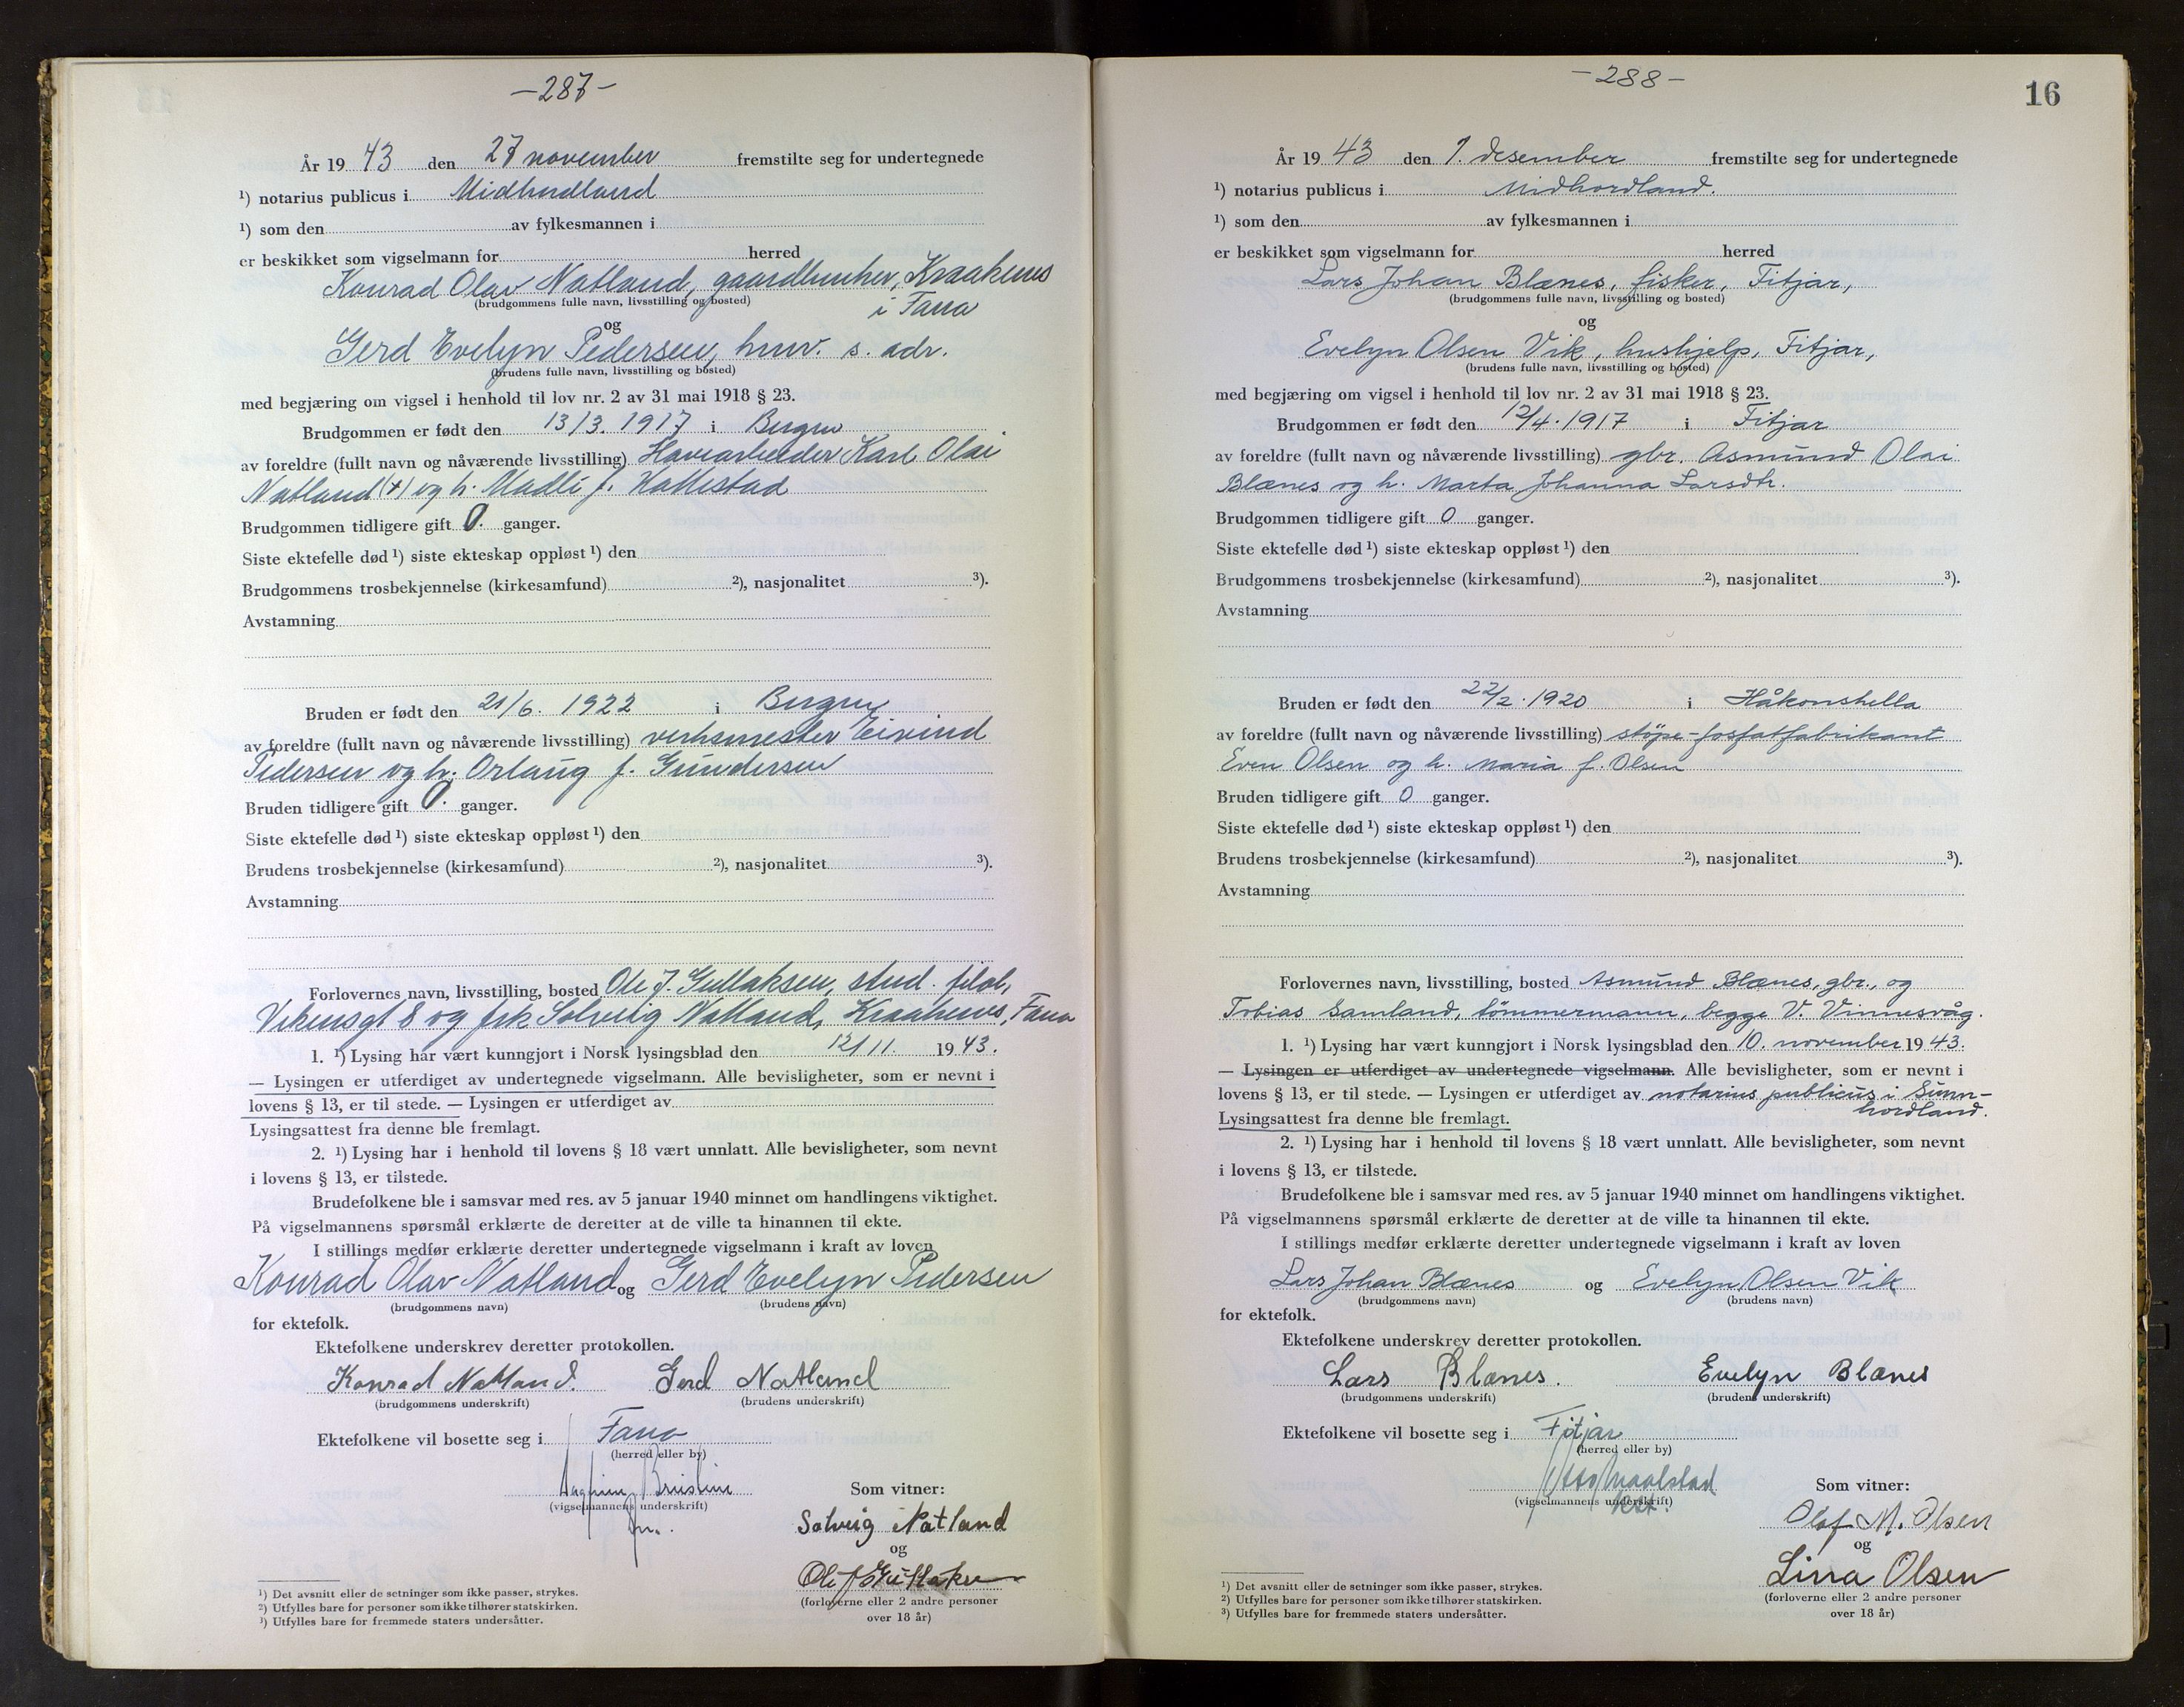 -287-
År 19 43 den 27 november fremstilte seg for undertegnede
¹) notarius publicus i Midhordland
¹) som den av fylkesmannen i
er beskikket som vigselmann for herred
Konrad Olav Natland, gaardbruker, Kraakenes
(brudgommens fulle navn, livsstilling og bosted)
i Fana
og
Gerd Evelyn Pedersen, husv. s. adr.
(brudens fulle navn, livsstilling og bosted)
med begjæring om vigsel i henhold til lov nr. 2 av 31 mai 1918 § 23.
Brudgommen er født den 13/3. 1917 i Bergen
av foreldre (fullt navn og nåværende livsstilling) Havnearbeider Karl Olai
Natland (+) og h. Madli f. Hattestad
Brudgommen tidligere gift 0. ganger.
Siste ektefelle død ¹) siste ekteskap oppløst ¹) den
Brudgommens trosbekjennelse (kirkesamfund) ²), nasjonalitet ³).
Avstamning
Bruden er født den 21/6. 1922 i Bergen
av foreldre (fullt navn og nåværende livsstilling) verksmester Eivind
Pedersen og h. Orlaug f. Gundersen
Bruden tidligere gift 0. ganger.
Siste ektefelle død ¹) siste ekteskap oppløst ¹) den
Brudens trosbekjennelse (kirkesamfund) ²), nasjonalitet ³).
Avstamning
Forlovernes navn, livsstilling, bosted Ole J. Gullaksen, stud. filol,
Vikensgt 8 og frk Solveig Natland, Kraakenes, Fana
1. ¹) Lysing har vært kunngjort i Norsk lysingsblad den 12/11. 1943.
— Lysingen er utferdiget av undertegnede vigselmann. Alle bevisligheter, som er nevnt i
lovens § 13, er til stede. — Lysingen er utferdiget av
Lysingsattest fra denne ble fremlagt.
2. ¹) Lysing har i henhold til lovens § 18 vært unnlatt. Alle bevisligheter, som nevnt
i lovens § 13, er tilstede.
Brudefolkene ble i samsvar med res. av 5 januar 1940 minnet om handlingens viktighet.
På vigselmannens spørsmål erklærte de deretter at de ville ta hinannen til ekte.
I stillings medfør erklærte deretter undertegnede vigselmann i kraft av loven
Konrad Olav Natland og Gerd Evelyn Pedersen
(brudgommens navn) (brudens navn)
for ektefolk.
Ektefolkene underskrev deretter protokollen.
Konrad Natland. Gerd Natland
(brudgommens underskrift) (brudens underskrift)
Ektefolkene vil bosette seg i Fana
(herred eller by)
(vigselmannens underskrift)
Som vitner:
Solveig Natland
og
Ole J Gullaksen
(forloverne eller 2 andre personer
over 18 år)
¹) Det avsnitt eller de setninger som ikke passer, strykes.
²) Utfylles bare for personer som ikke tilhører statskirken.
³) Utfylles bare for fremmede staters undersåtter.
-288-
16
År 19 43 den 1. desember fremstilte seg for undertegnede
¹) notarius publicus i Midhordland.
¹) som den av fylkesmannen i
er beskikket som vigselmann for herred
Lars Johan Blænes, fisker, Fitjar,
(brudgommens fulle navn, livsstilling og bosted)
og
Evelyn Olsen Vik, hushjelp, Fitjar,
(brudens fulle navn, livsstilling og bosted)
med begjæring om vigsel i henhold til lov nr. 2 av 31 mai 1918 § 23.
Brudgommen er født den 12/4. 1917 i Fitjar
av foreldre (fullt navn og nåværende livsstilling) gbr. Asmund Olai
Blænes og h. Marta Johanna Larsdtr.
Brudgommen tidligere gift 0 ganger.
Siste ektefelle død ¹) siste ekteskap oppløst ¹) den
Brudgommens trosbekjennelse (kirkesamfund) ²), nasjonalitet ³).
Avstamning
Bruden er født den 22/2. 1920 i Håkonshella
av foreldre (fullt navn og nåværende livsstilling) støpe-fosfatfabrikant
Even Olsen og h. Maria f. Olsen
Bruden tidligere gift 0 ganger.
Siste ektefelle død ¹) siste ekteskap oppløst ¹) den
Brudens trosbekjennelse (kirkesamfund) ²), nasjonalitet ³).
Avstamning
Forlovernes navn, livsstilling, bosted Asmund Blænes, gbr., og
Tobias Samland, tømmermann, begge V. Vinnesvåg.
1. ¹) Lysing har vært kunngjort i Norsk lysingsblad den 10. november 1943.
— Lysingen er utferdiget av undertegnede vigselmann. Alle bevisligheter, som er nevnt i
lovens § 13, er til stede. — Lysingen er utferdiget av notarius publicus i Sunn-
hordland.
Lysingsattest fra denne ble fremlagt.
2. ¹) Lysing har i henhold til lovens § 18 vært unnlatt. Alle bevisligheter, som nevnt
i lovens § 13, er tilstede.
Brudefolkene ble i samsvar med res. av 5 januar 1940 minnet om handlingens viktighet.
På vigselmannens spørsmål erklærte de deretter at de ville ta hinannen til ekte.
I stillings medfør erklærte deretter undertegnede vigselmann i kraft av loven
Lars Johan Blænes og Evelyn Olsen Vik
(brudgommens navn) (brudens navn)
for ektefolk.
Ektefolkene underskrev deretter protokollen.
Lars Blænes. Evelyn Blænes
(brudgommens underskrift) (brudens underskrift)
Ektefolkene vil bosette seg i Fitjar
(herred eller by)
(vigselmannens underskrift)
Som vitner:
Olof M. Olsen
og
Lina Olsen
(forloverne eller 2 andre personer
over 18 år)
¹) Det avsnitt eller de setninger som ikke passer, strykes.
²) Utfylles bare for personer som ikke tilhører statskirken.
³) Utfylles bare for fremmede staters undersåtter.